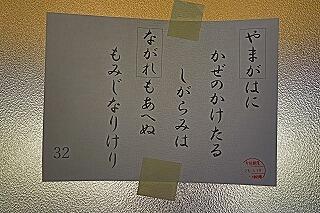 やまがはに
かぜのかけたる
しがらみは
ながれもあへぬ
もみじなりけり
32